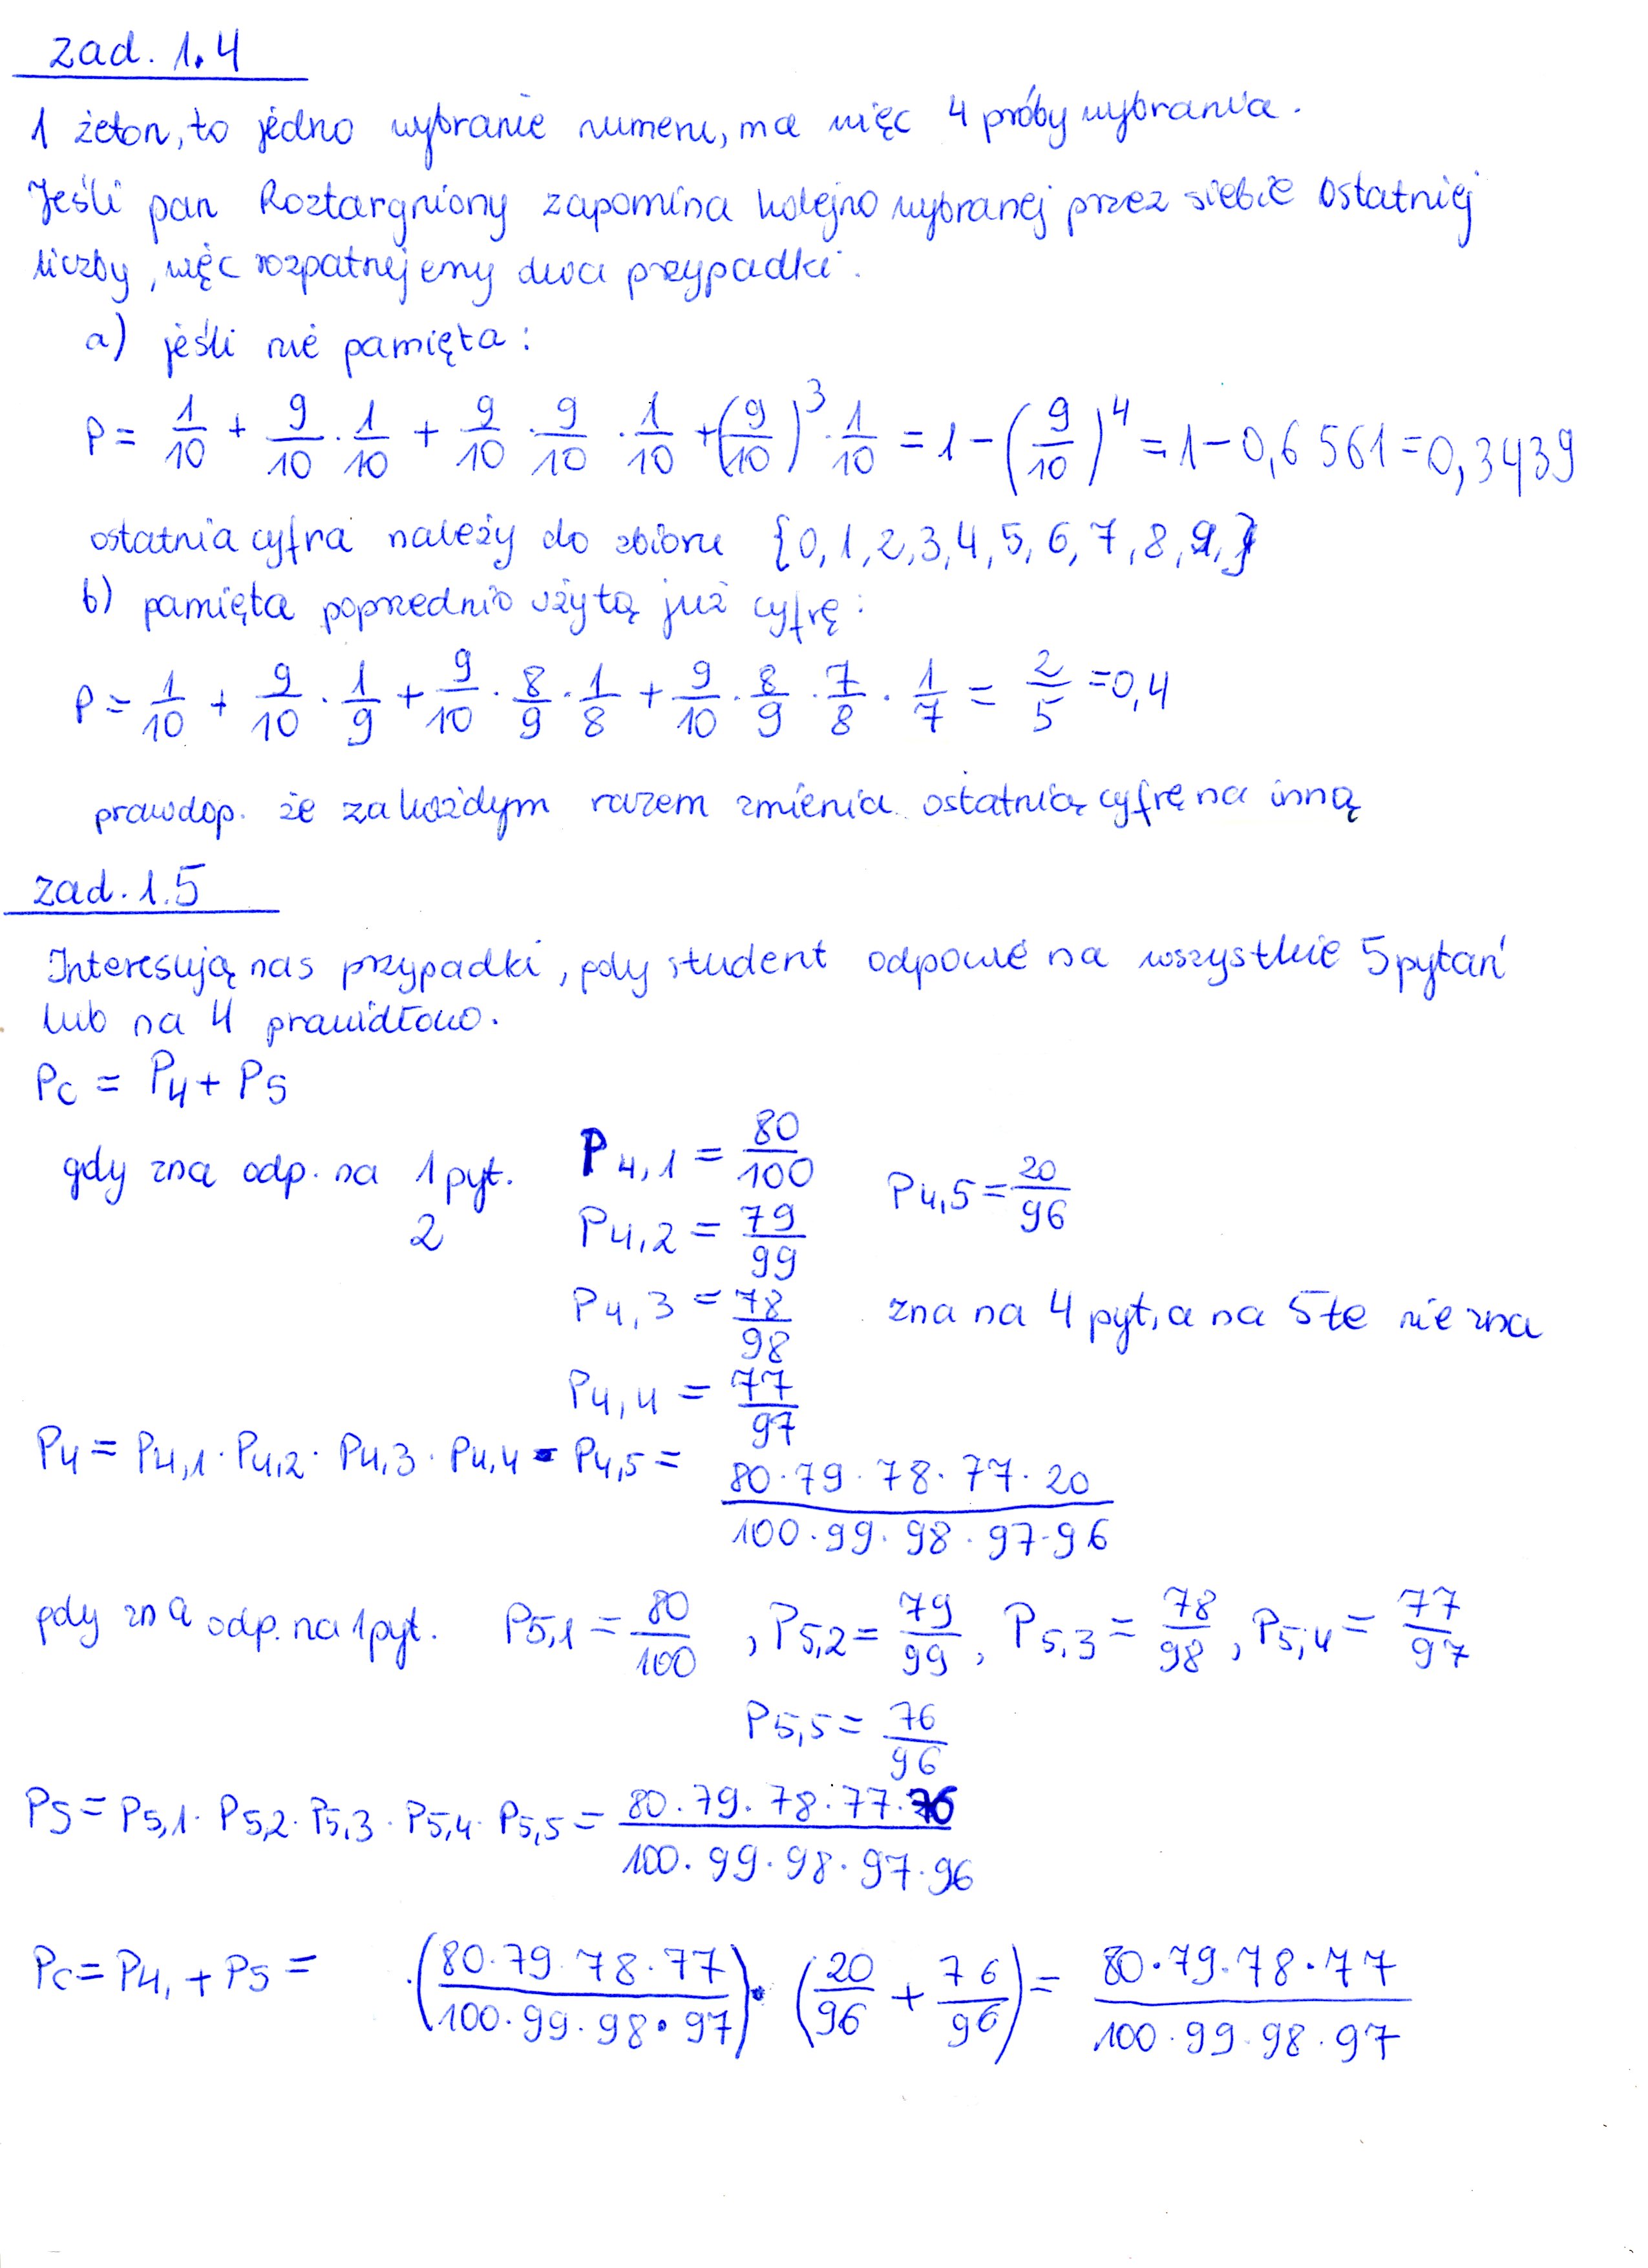 zad. 1.4
1 żeton, to jedno wybranie numeru, ma więc 4 próby wybrania.
Jeśli pan Roztargniony zapomina kolejno wybranej przez siebie ostatniej
liczby, więc rozpatrujemy dwa przypadki.
a) jeśli nie pamięta:
P = 1/10 + 9/10 · 1/10 + 9/10 · 9/10 · 1/10 + (9/10)^3 · 1/10 = 1 - (9/10)^4 = 1 - 0,6561 = 0,3439
ostatnia cyfra należy do zbioru {0,1,2,3,4,5,6,7,8,9,}
b) pamięta poprzednio użytą już cyfrę:
P = 1/10 + 9/10 · 1/9 + 9/10 · 8/9 · 1/8 + 9/10 · 8/9 · 7/8 · 1/7 = 2/5 = 0,4
prawdop. że za każdym razem zmienia ostatnią cyfrę na inną
zad. 1.5
Interesują nas przypadki, gdy student odpowie na wszystkie 5 pytań
lub na 4 prawidłowo.
Pc = P4 + P5
gdy zna odp. na 1 pyt. P4,1 = 80/100 P4,5 = 20/96
2 P4,2 = 79/99
P4,3 = 78/98 zna na 4 pyt, a na 5te nie zna
P4,4 = 77/97
P4 = P4,1 · P4,2 · P4,3 · P4,4 · P4,5 = 80·79·78·77·20/100·99·98·97·96
gdy zna odp. na 1 pyt. P5,1 = 80/100, P5,2 = 79/99, P5,3 = 78/98, P5,4 = 77/97
P5,5 = 76/96
P5 = P5,1 · P5,2 · P5,3 · P5,4 · P5,5 = 80·79·78·77·76/100·99·98·97·96
Pc = P4, + P5 = (80·79·78·77/100·99·98·97) · (20/96 + 76/96) = 80·79·78·77/100·99·98·97